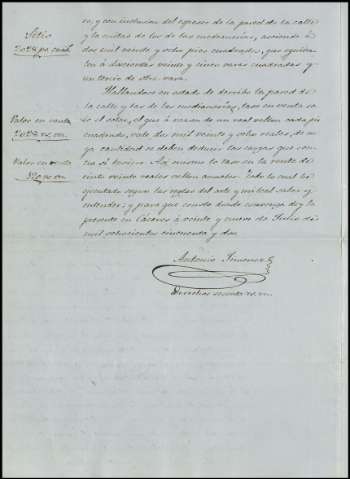 Sitio
2028 ps. cuads.
so, y con inclusion del espesor de la pared de la calle
y la mitad de los de las medianerias, asciende a
dos mil veinte y ocho pies cuadrados, que equivalen
a doscientas veinte y cinco varas cuadradas y
un tercio de otra vara.
Hallandose en estado de derribo la pared de
la calle y las de las medianerias, taso en venta
solo el solar, el que à razon de un real vellon cada pie
Valor en venta
2028 rs. vn.
cuadrado, vale dos mil veinte y ocho reales, de cu-
ya cantidad se deben deducir las cargas que con-
Valor en renta
tra si tuviere. Asi mismo lo taso en la renta de
ciento veinte reales vellon anuales. Todo lo cual he
ejecutado segun las reglas del arte y mi leal saber y
entender; y para que conste donde convenga doy la
presente en Cáceres à veinte y nueve de Junio de
mil ochocientos cincuenta y dos.
Antonio Jimenez
Derechos sesenta rs. vn.